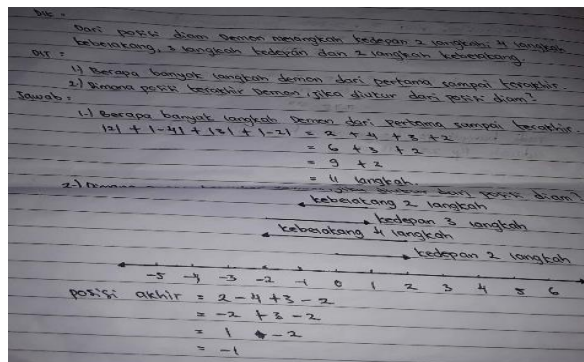 Dik :
Dari posisi diam Demon melangkah kedepan 2 langkah, 4 langkah
kebelakang, 3 langkah kedepan dan 2 langkah kebelakang.
DIT :
1) Berapa banyak langkah demon dari pertama sampai terakhir.
2) Dimana posisi terakhir Demon, jika diukur dari posisi diam?
Jawab :
1.) Berapa banyak langkah Demon dari pertama sampai terakhir.
|2| + |-4| + |3| + |-2| = 2 + 4 + 3 + 2
= 6 + 3 + 2
= 9 + 2
= 11 langkah.
2.) diukur dari posisi diam?
kebelakang 2 langkah
kedepan 3 langkah
kebelakang 4 langkah
kedepan 2 langkah
-5 -4 -3 -2 -1 0 1 2 3 4 5 6
posisi akhir = 2 - 4 + 3 - 2
= -2 + 3 - 2
= 1 - 2
= -1